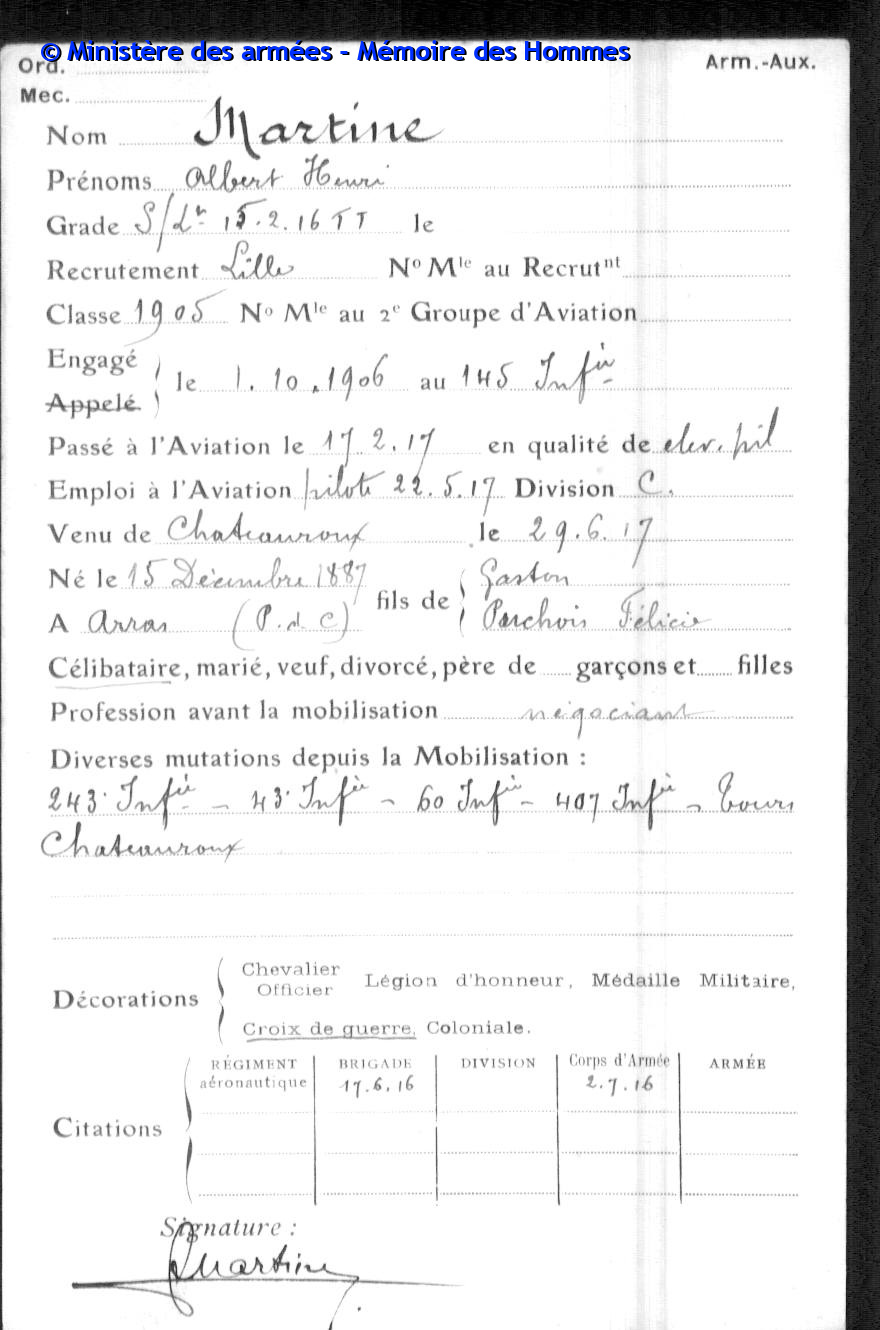 © Ministère des armées - Mémoire des Hommes
Ord. Arm.-Aux.
Mec.
Nom Martine
Prénoms Albert Henri
Grade S/Lt 15.2.16 TT le
Recrutement Lille No Mle au Recrutnt
Classe 1905 No Mle au 2e Groupe d'Aviation
Engagé
Appelé
le 1.10.1906 au 145 Infie
Passé à l'Aviation le 17.2.17 en qualité de elev. pil
Emploi à l'Aviation pilote 22.5.17 Division C.
Venu de Chateauroux le 29.6.17
Né le 15 Décembre 1887 fils de Gaston
A Arras (P. d C) Parchois Félicie
Célibataire, marié, veuf, divorcé, père de garçons et filles
Profession avant la mobilisation négociant
Diverses mutations depuis la Mobilisation :
243e Infie - 43e Infie - 60 Infie - 407 Infie - Tours
Chateauroux
Décorations
Chevalier
Officier
Légion d'honneur, Médaille Militaire,
Croix de guerre, Coloniale.
RÉGIMENT BRIGADE DIVISION Corps d'Armée ARMÉE
aéronautique 17.6.16 2.7.16
Citations
Signature :
Martine